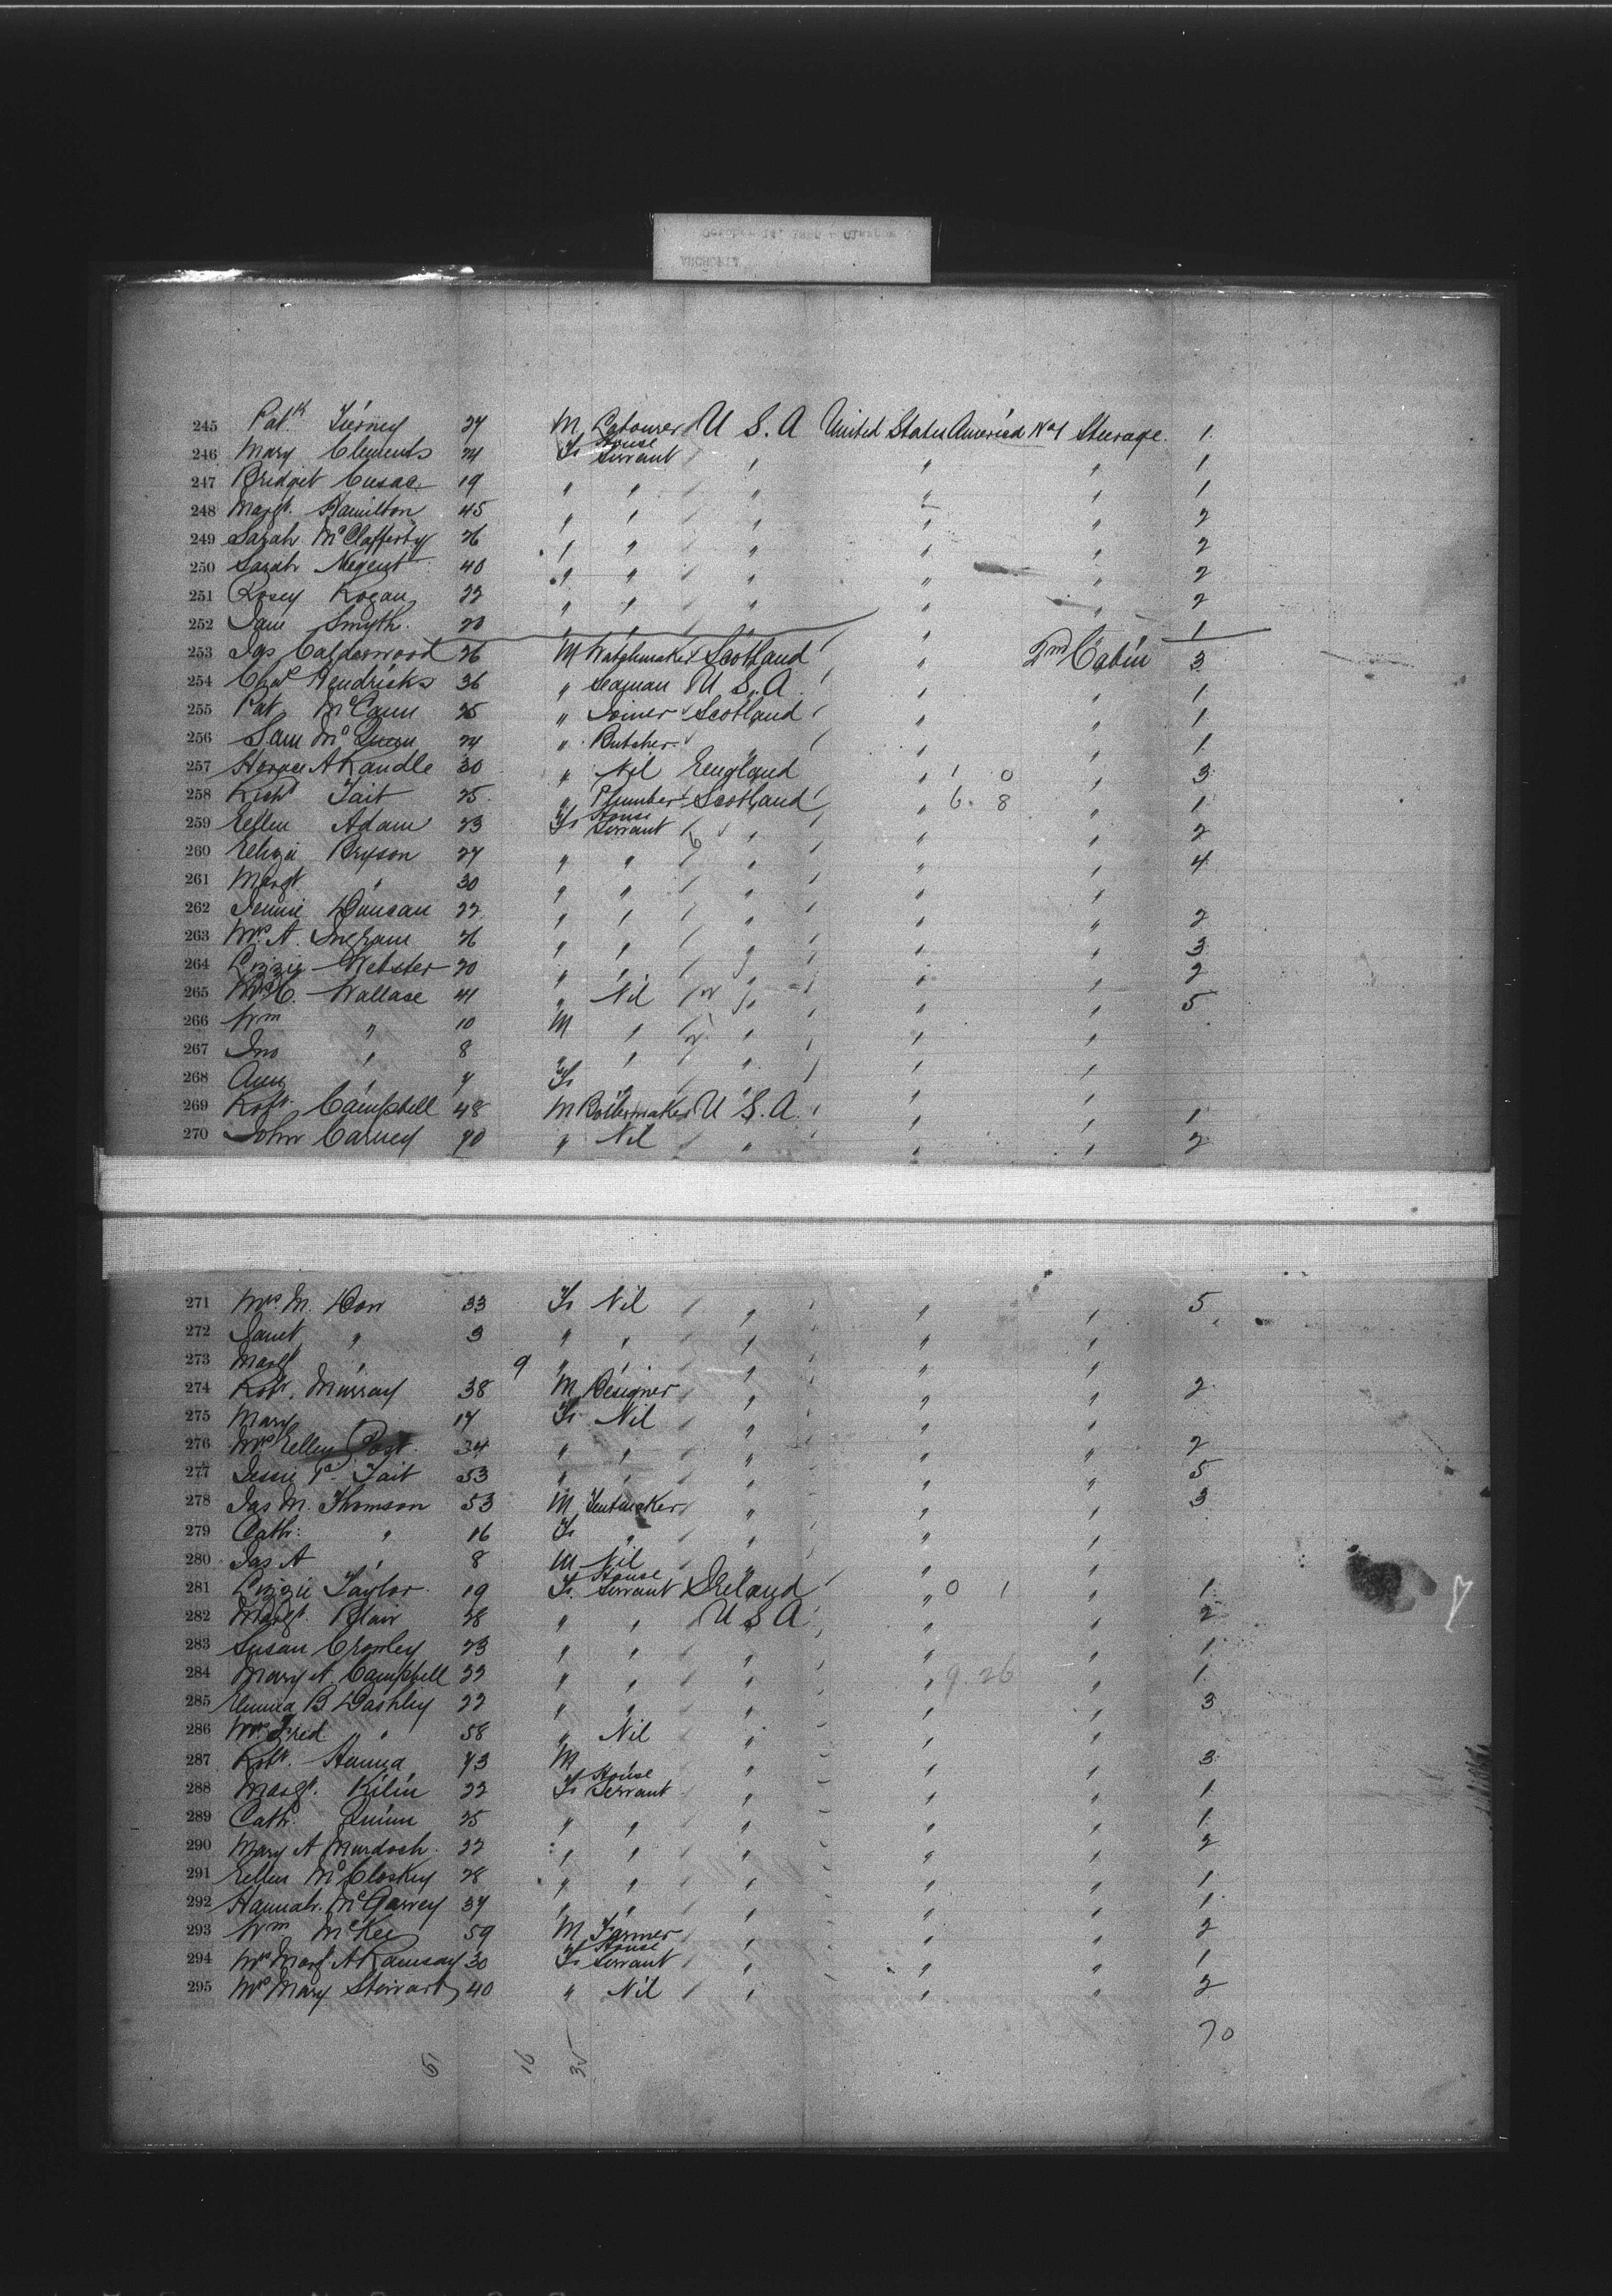 245 Patk Tierney 27 M Labourer U S. A United States America No 1 Steerage. 1
246 Mary Clements 24 F House Servant " " " 1
247 Bridget Cusac 19 " " " " " 1
248 Margt. Hamilton 45 " " " " " 2
249 Sarah McClafferty 26 " " " " " 2
250 Sarah Negent 40 " " " " " 2
251 Rosey Rogan 22 " " " " " 2
252 Jane Smyth. 20 " " " " 1
253 Jas Calderwood 26 M Watchmaker Scotland " 2nd Cabin 3
254 Chas Hendricks 36 " Seaman U S. A " " 1
255 Pat McCann 25 " Joiner Scotland " " 1
256 Sam McQueen 24 " Butcher " " " 1
257 Horace A Randle 30 " Nil England " 1 0 " 3
258 Richd Tait 25 " Plumber Scotland " 6. 8 " 1
259 Ellen Adam 23 F House Servant " " " 2
260 Eliza Bryson 27 " " " " " 4
261 Margt " 30 " " " " "
262 Jennie Duncan 22 " " " " " 2
263 Mrs A. Ingram 26 " " " " " 3
264 Lizzie Webster 20 " " " " " 2
265 Mrs C. Wallase 41 " Nil " " " 5
266 Wm " 10 M " " " "
267 Jno " 8 " " " " "
268 Ann " 7 F " " " "
269 Robt. Campbell 48 M Boilermaker U S. A. " " 1
270 John Carney 70 " Nil " " " 2
271 Mrs. M. Dow 33 F Nil " " " 5
272 Janet " 3 " " " " "
273 Margt " 9 " " " " "
274 Robt. Murray 38 M Designer " " " 2
275 Mary 17 F Nil " " "
276 Mrs Ellen Post 34 " " " " " 2
277 Jessie P. Tait 53 " " " " " 5
278 Jas M. Thomson 53 M Tentmaker " " " 3
279 Cath: " 16 F " " " "
280 Jas A " 8 M Nil " " "
281 Lizzie Taylor 19 F House Servant Ireland " 0 1 " 1
282 Margt. Blair 28 " " U S A " " 2
283 Susan Crowley 23 " " " " " 1
284 Mary A Campbell 22 " " " " 9. 26 " 1
285 Emma B Dashley 22 " " " " " 3
286 Mrs Fred " 58 " Nil " " "
287 Robt. Hanna 43 M " " " 3
288 Margt. Kilin 22 F House Servant " " " 1
289 Cath. Quinn 25 " " " " " 1
290 Mary A Murdoch. 22 " " " " " 2
291 Ellen McCloskey 28 " " " " " 1
292 Hannah. McGarvey 37 " " " " " 1
293 Wm McKee 59 M Farmer " " " 2
294 Mrs Margt A Ramsay 30 F House Servant " " " 1
295 Mrs Mary Stewart 40 " Nil " " " 2
70